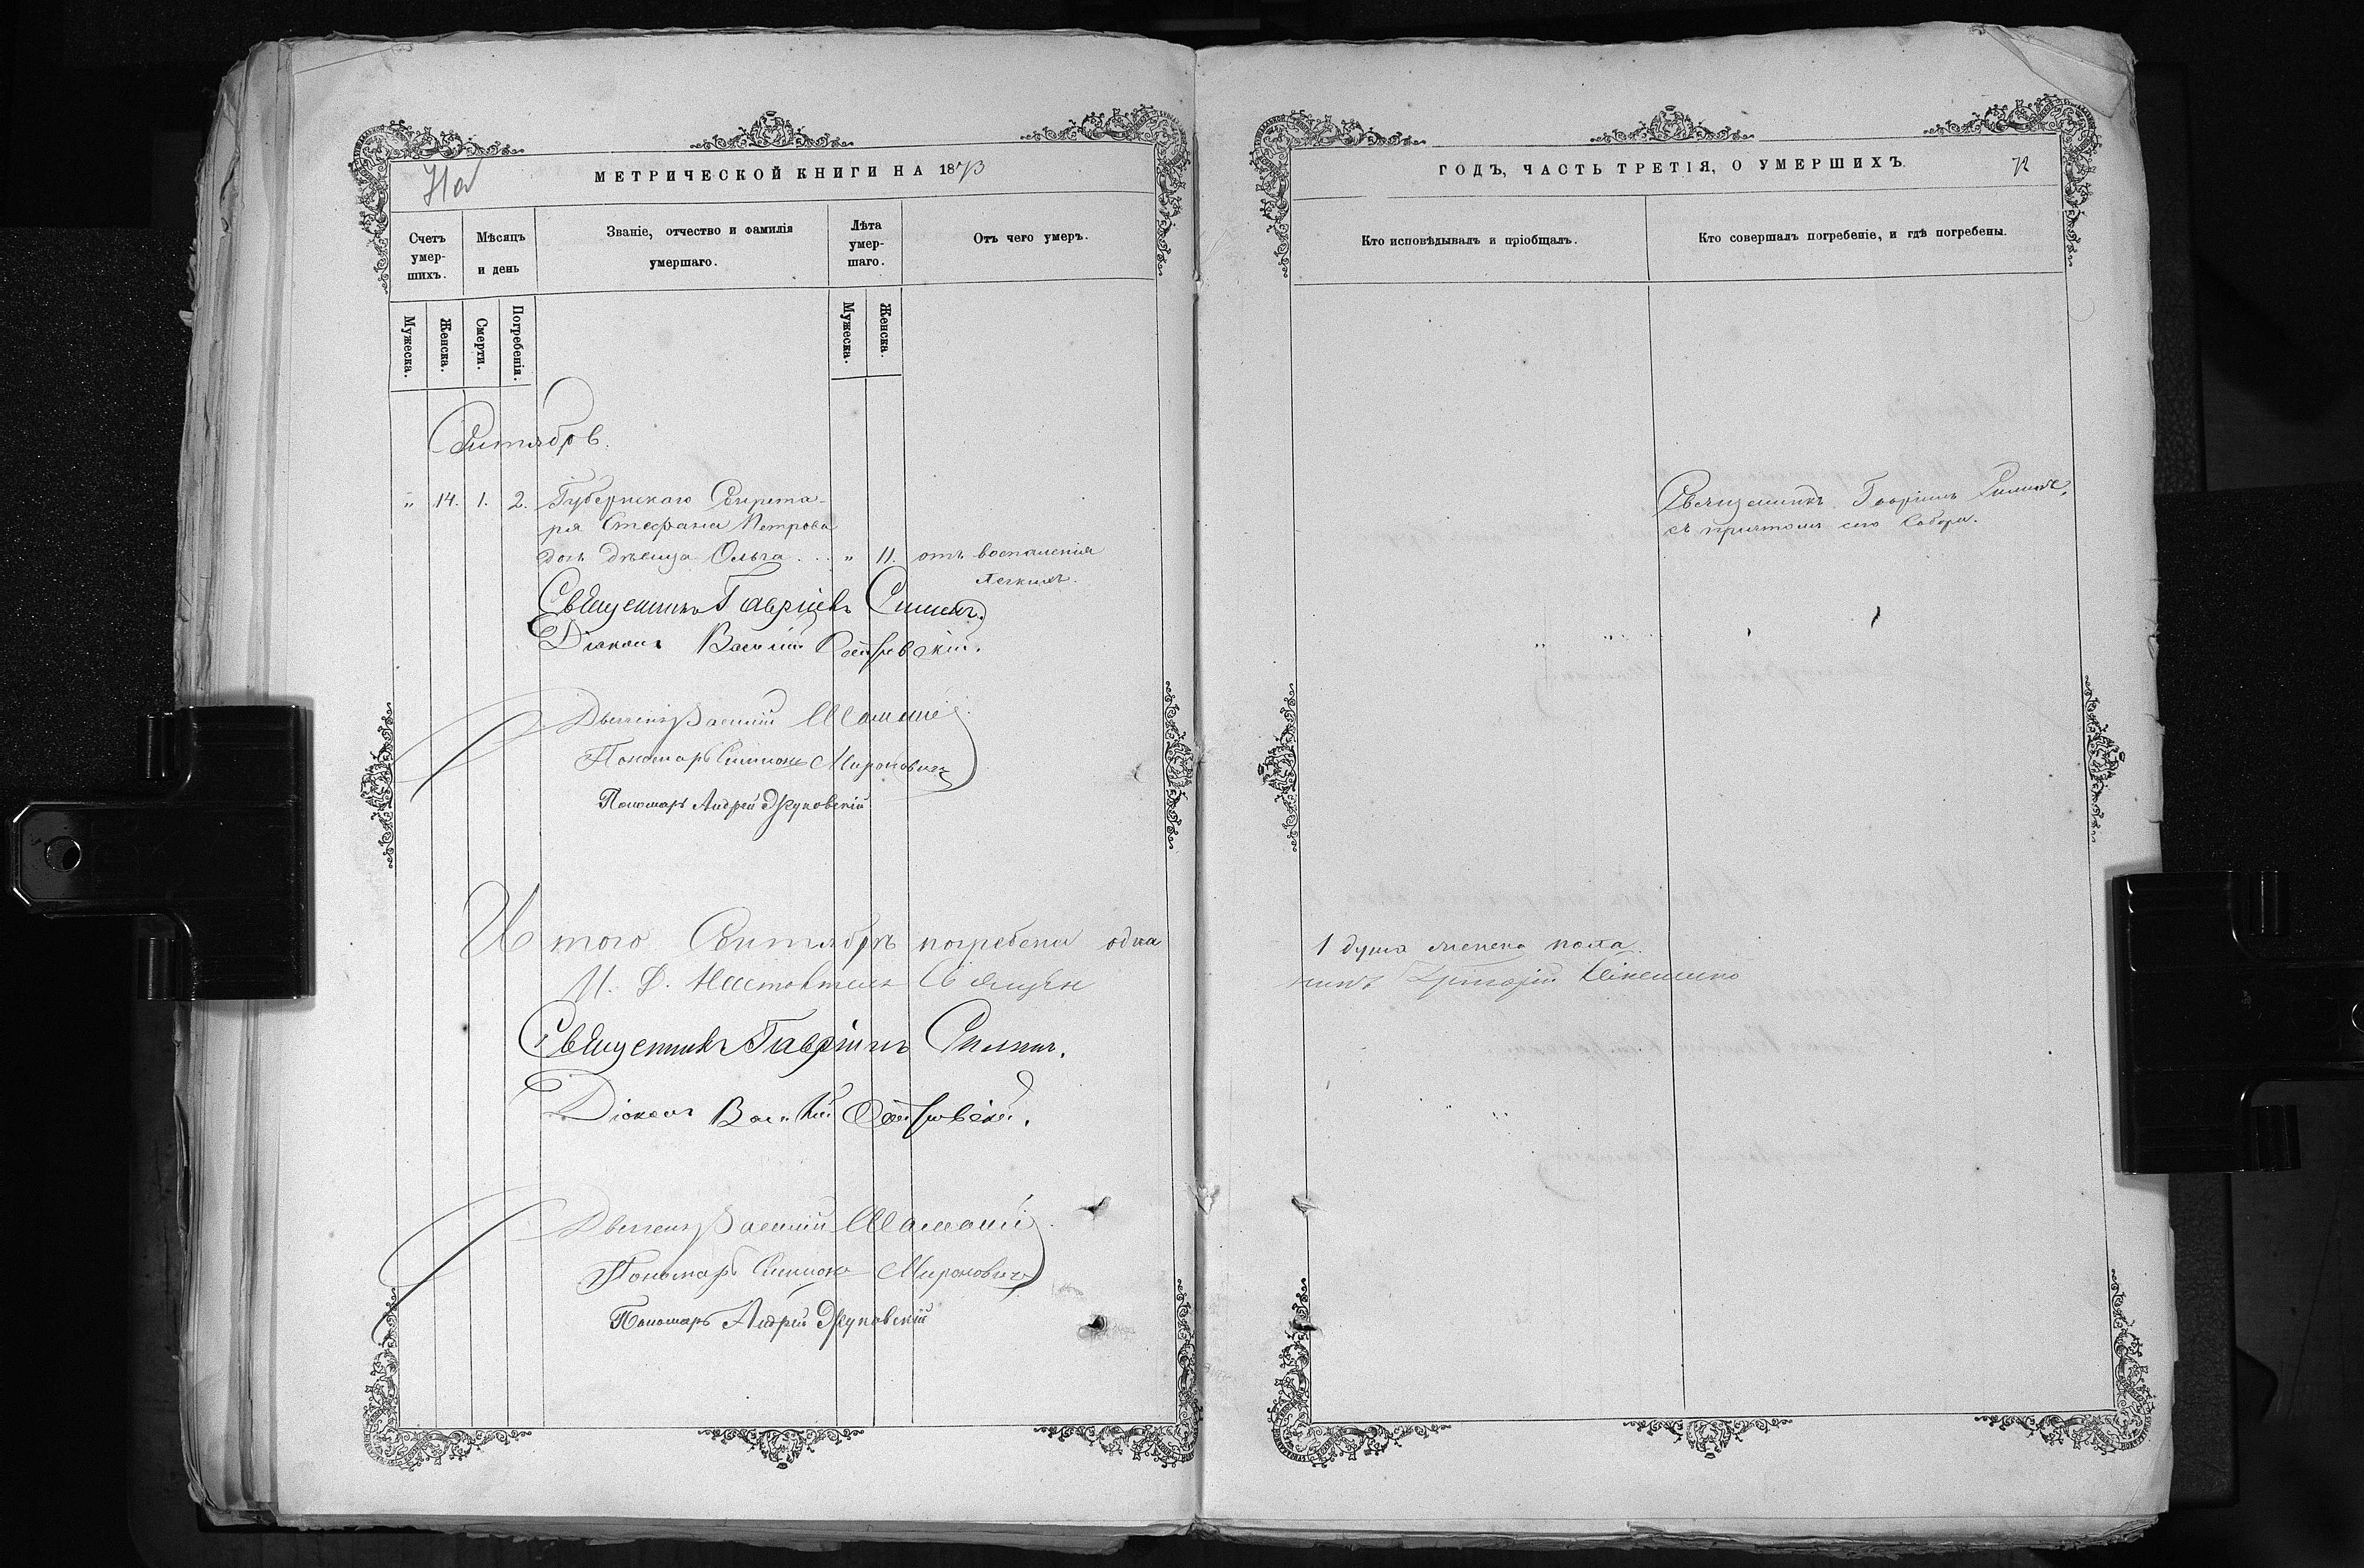 МЕТРИЧЕСКОЙ КНИГИ НА 1873
Счетъ умер-шихъ.
Мѣсяцъ и день
Званіе, отчество и фамилія умершаго.
Лѣта умер-шаго.
Отъ чего умеръ.
Мужеска.
Женска.
Смерти.
Погребенія.
Мужеска.
Женска.
Сентябрь.
" 14. 1. 2. Губернскаго Секрета-
ря Стефана Петрова
дочь дѣвица Ольга . . . " 11. отъ воспаленія
легкихъ.
Священникъ Гавріилъ
Діаконъ Василій Островскій.
Дьячекъ Василій
Пономарь Симионъ Мироновичъ
Пономарь Андрей Жуковскій
Итого Сентябрѣ погребена одна
И. Д. Настоятеля Священ
Священникъ Гавріилъ
Діаконъ Василій Островскій.
Дьячекъ Василій
Пономарь Симионъ Мироновичъ
Пономарь Андрей Жуковскій
ГОДЪ, ЧАСТЬ ТРЕТІЯ, О УМЕРШИХЪ.
72
Кто исповѣдывалъ и пріобщалъ.
Кто совершалъ погребеніе, и гдѣ погребены.
Священникъ Гавріилъ
съ причтомъ сего Собора.
1 душа женска пола.
никъ Григорій